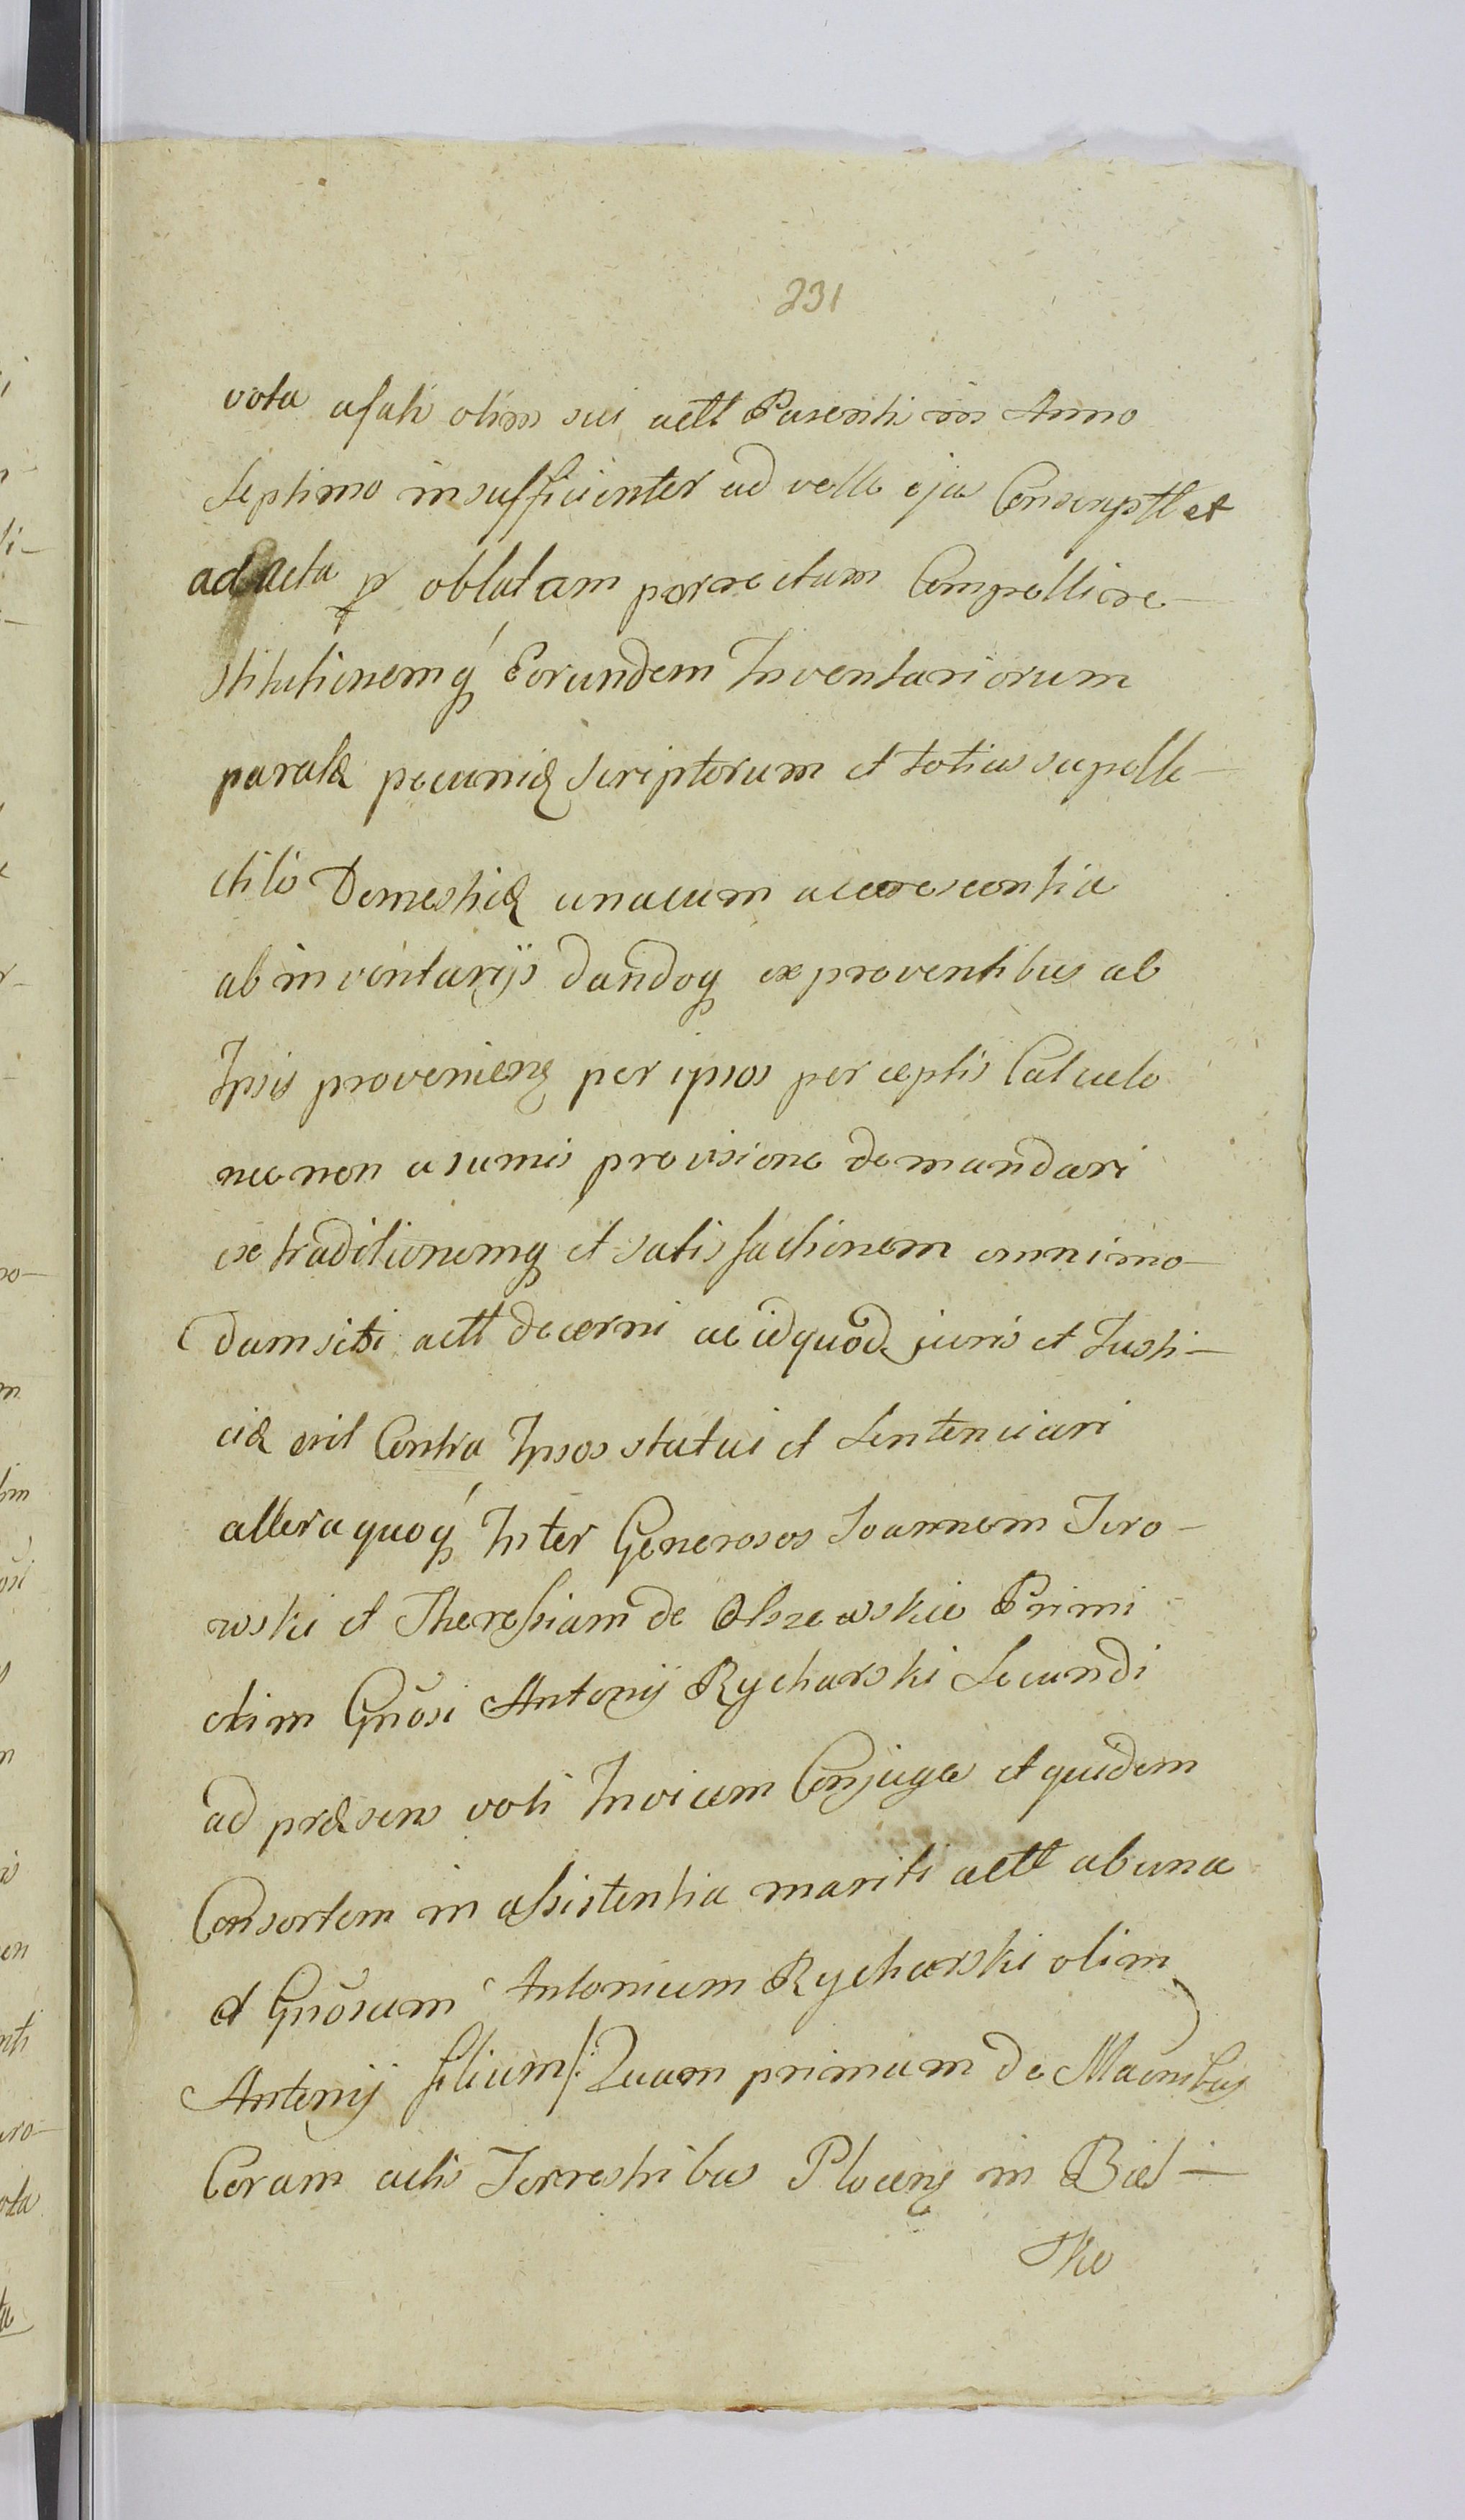 231
vota a fatis olim sui actt Parentis in Anno
Septimo insufficienter ad velle ejus Conscriptt et
ad Acta p oblatam porrectum Compelli re-
stitutionemq́ Eorundem Inventariorum
paratæ pecuniæ scriptorum et totius supelle-
ctilis Domesticæ unacum accrescentia
ab inventarijs dandoq ex proventibus ab
Ipsis provenienꝫ per ipsos perceptis Calculo
nec non a sumis provisione demandari
extraditionemq et satisfactionem omnimo-
dam sibi actt decerni ac id quod juris et Justi-
ciæ erit Contra Ipsos statui et Sentenciari
altera quoq́ Inter Generosos Joannem Jero-
wski et Theresiam de Olszewskie Primi
olim Gnōsi Antonij Rycharski Secundi
ad præsens voti Invicem Conjuges et quidem
Consortem in assistentia mariti actt ab una
et Gnōsum Antonium Rycharski olim
Antonij filium/: Quam primum de
Coram actis Terrestribus Plocenꝫ in Biel-
sko